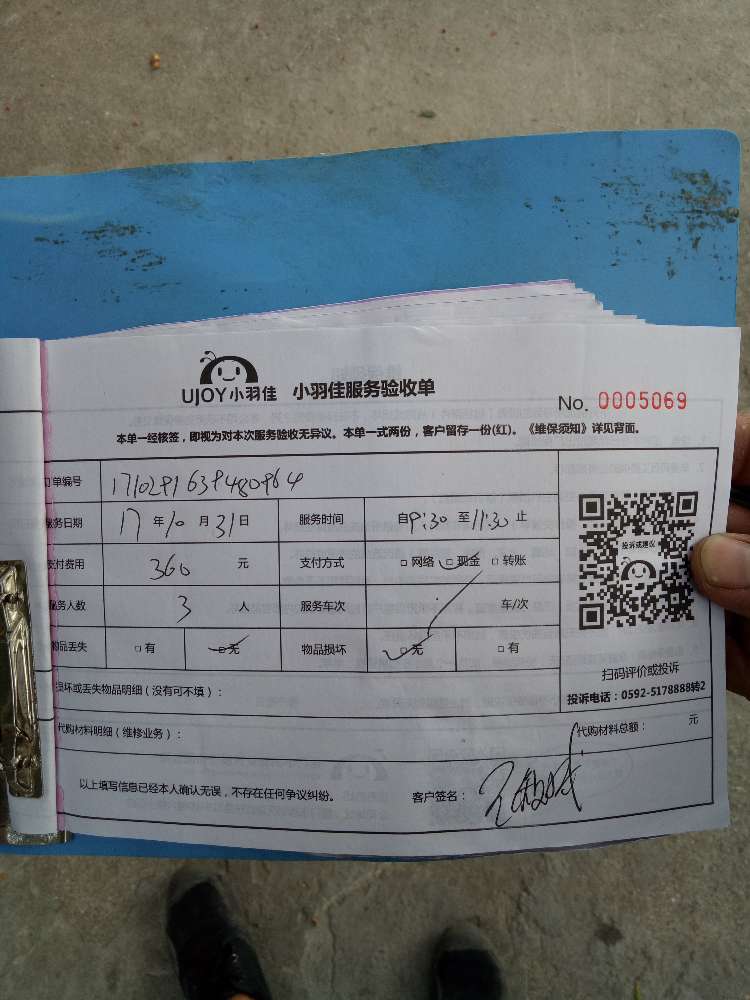 UJOY小羽佳 小羽佳服务验收单
No. 0005069
本单一经核签，即视为对本次服务验收无异议。本单一式两份，客户留存一份(红)。《维保须知》详见背面。
订单编号 1710291639480964
服务日期 17 年 10 月 31 日 服务时间 自9:30 至11:30 止
支付费用 360 元 支付方式 □ 网络 □ 现金 □ 转账
服务人数 3 人 服务车次 / 车/次
物品丢失 □ 有 □ 无 物品损坏 □ 无 □ 有
损坏或丢失物品明细（没有可不填）：
代购材料明细（维修业务）： 代购材料总额： 元
以上填写信息已经本人确认无误，不存在任何争议纠纷。 客户签名：
投诉或建议
扫码评价或投诉
投诉电话：0592-5178888转2